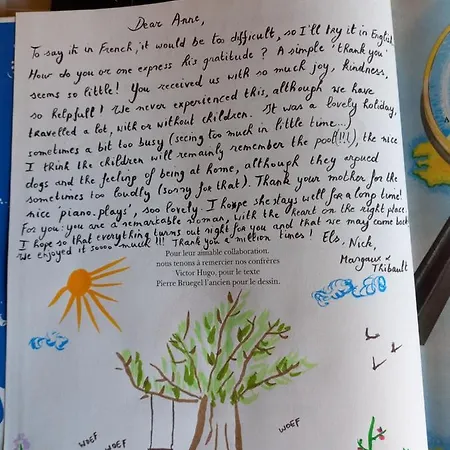 Dear Anne,
To say it in French, it would be too difficult, so I'll try it in English.
How do you or one express his gratitude? A simple 'thank you'
seems so little! You received us with so much joy, kindness,
so helpfull! We never experienced this, although we have
travelled a lot, with or without children. It was a lovely holiday,
sometimes a bit too busy (seeing too much in little time...)
I think the children will remainly remember the pool(!!!), the nice
dogs and the feeling of being at home, although they argued
sometimes too loudly (sorry for that). Thank your mother for the
nice 'piano.plays', soo lovely I hoxpe she stays well for a long time!
For you: you are a remarkable woman, with the heart on the right place.
I hope so that everything turns out right for you and that we may come back
We enjoyed it soooo much !!! Thank you a million times! Els, Nick,
Margaux &
Thibault
Pour leur aimable collaboration,
nous tenons à remercier nos confrères
Victor Hugo, pour le texte
Pierre Bruegel l'ancien pour le dessin.
WOEF
WOEF
WOEF
WOEF